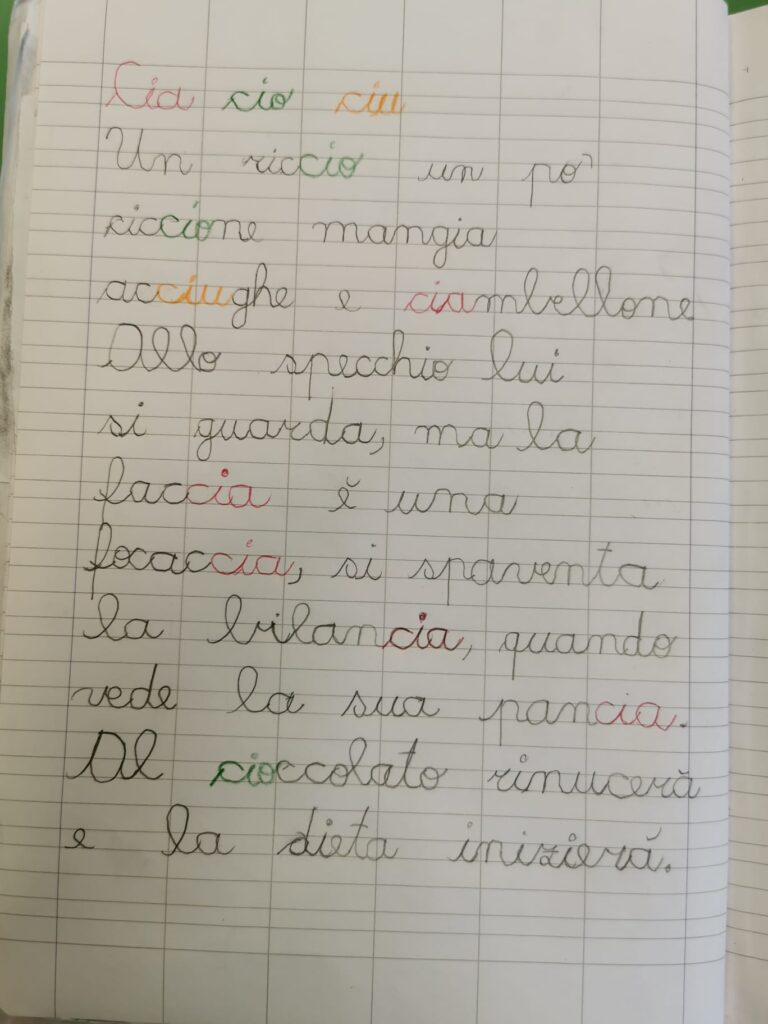 Cia cio ciu
Un riccio un po'
ciccione mangia
acciughe e ciambellone
Allo specchio lui
si guarda, ma la
faccia è una
focaccia, si spaventa
la bilancia, quando
vede la sua pancia.
Al cioccolato rinucerà
e la dieta inizierà.